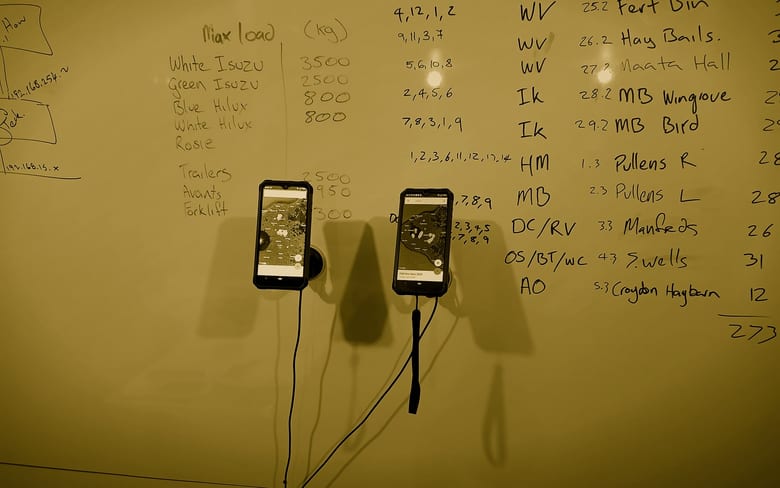 How
192.168.254.2
192.168.15.x
Max load (kg)
White Isuzu 3500
Green Isuzu 2500
Blue Hilux 800
White Hilux 800
Rosie
Trailers 2500
Avants 950
Forklift 300
4, 12, 1, 2 WV 25.2 Fert Bin
9, 11, 3, 7 WV 26.2 Hay Bails.
5, 6, 10, 8 WV 27.2 Maata Hall
2, 4, 5, 6 Ik 28.2 MB Wingrove
7, 8, 3, 1, 9 Ik 29.2 MB Bird
1, 2, 3, 6, 11, 12, 13, 14 HM 1.3 Pullens R 28
, 7, 8, 9 MB 2.3 Pullens L 28
2, 3, 4, 5
, 7, 8, 9 DC/RV 3.3 Manfeds 26
OS/BT/WC 4.3 S.wells 31
AO 5.3 Croydon Haybarn 12
273